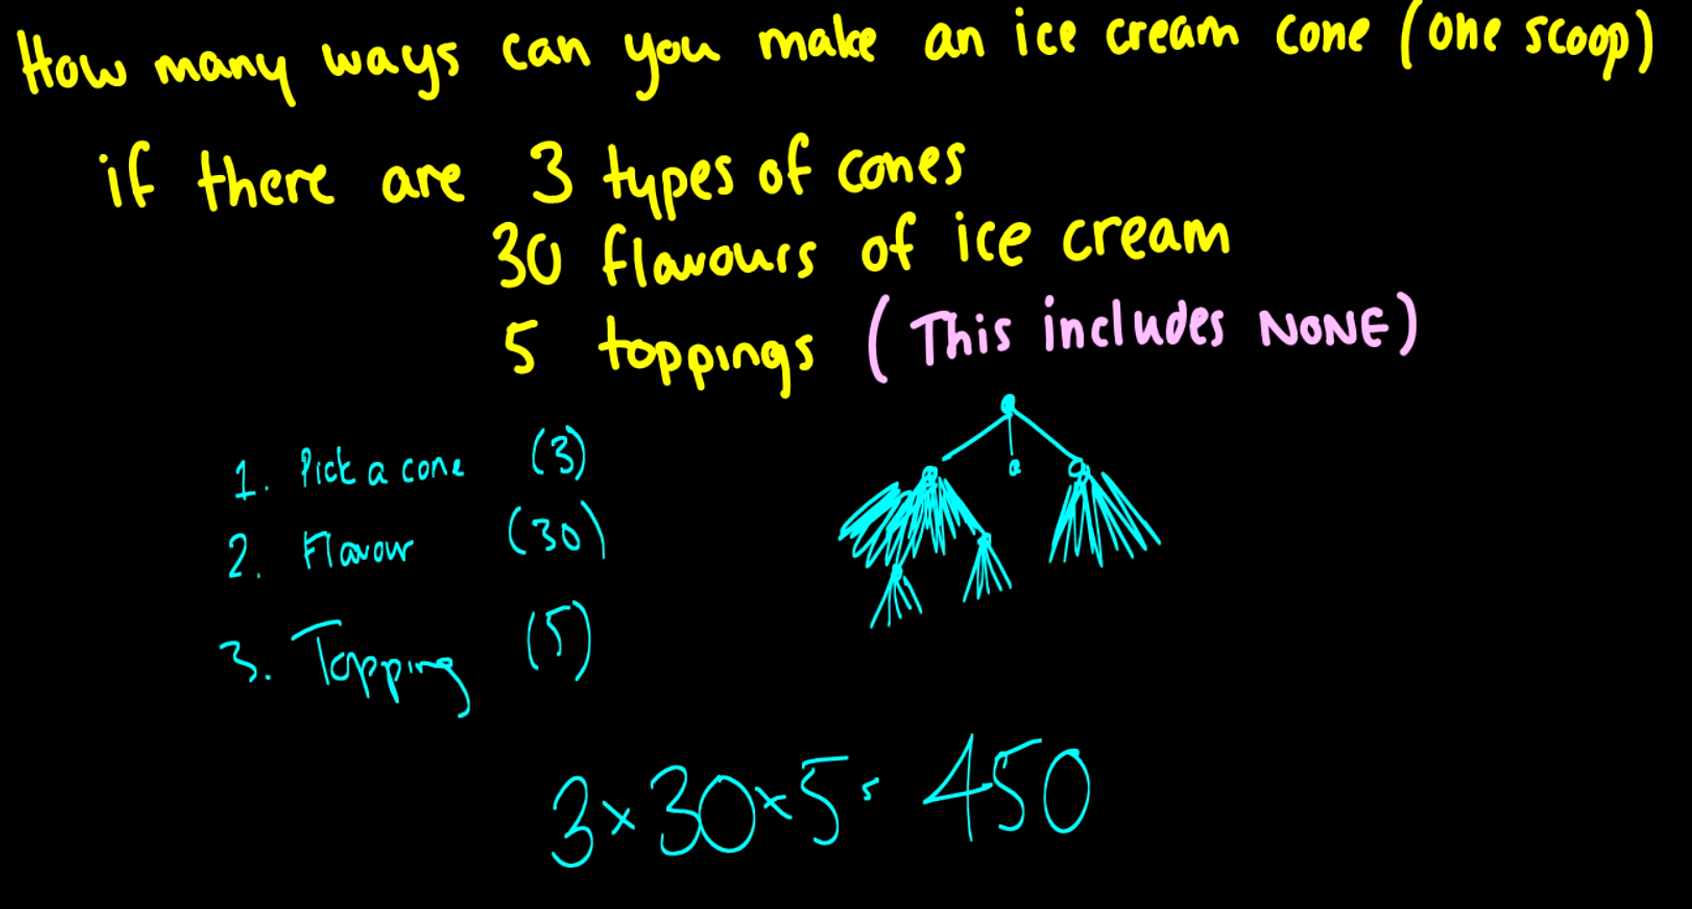 How many ways can you make an ice cream cone (one scoop)
if there are 3 types of cones
30 flavours of ice cream
5 toppings (This includes NONE)
1. Pick a cone (3)
2. Flavour (30)
3. Topping (5)
3 x 30 x 5 = 450